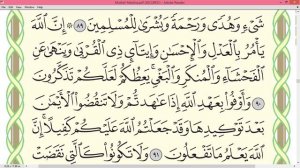 شَيْءٍ وَهُدًى وَرَحْمَةً وَبُشْرَىٰ لِلْمُسْلِمِينَ ٨٩ ۞ إِنَّ ٱللَّهَ
يَأْمُرُ بِٱلْعَدْلِ وَٱلْإِحْسَٰنِ وَإِيتَآئِ ذِى ٱلْقُرْبَىٰ وَيَنْهَىٰ عَنِ
ٱلْفَحْشَآءِ وَٱلْمُنكَرِ وَٱلْبَغْىِ يَعِظُكُمْ لَعَلَّكُمْ تَذَكَّرُونَ
٩٠ وَأَوْفُوا۟ بِعَهْدِ ٱللَّهِ إِذَا عَٰهَدتُّمْ وَلَا تَنقُضُوا۟ ٱلْأَيْمَٰنَ
بَعْدَ تَوْكِيدِهَا وَقَدْ جَعَلْتُمُ ٱللَّهَ عَلَيْكُمْ كَفِيلًا إِنَّ
ٱللَّهَ يَعْلَمُ مَا تَفْعَلُونَ ٩١ وَلَا تَكُونُوا۟ كَٱلَّتِى نَقَضَتْ